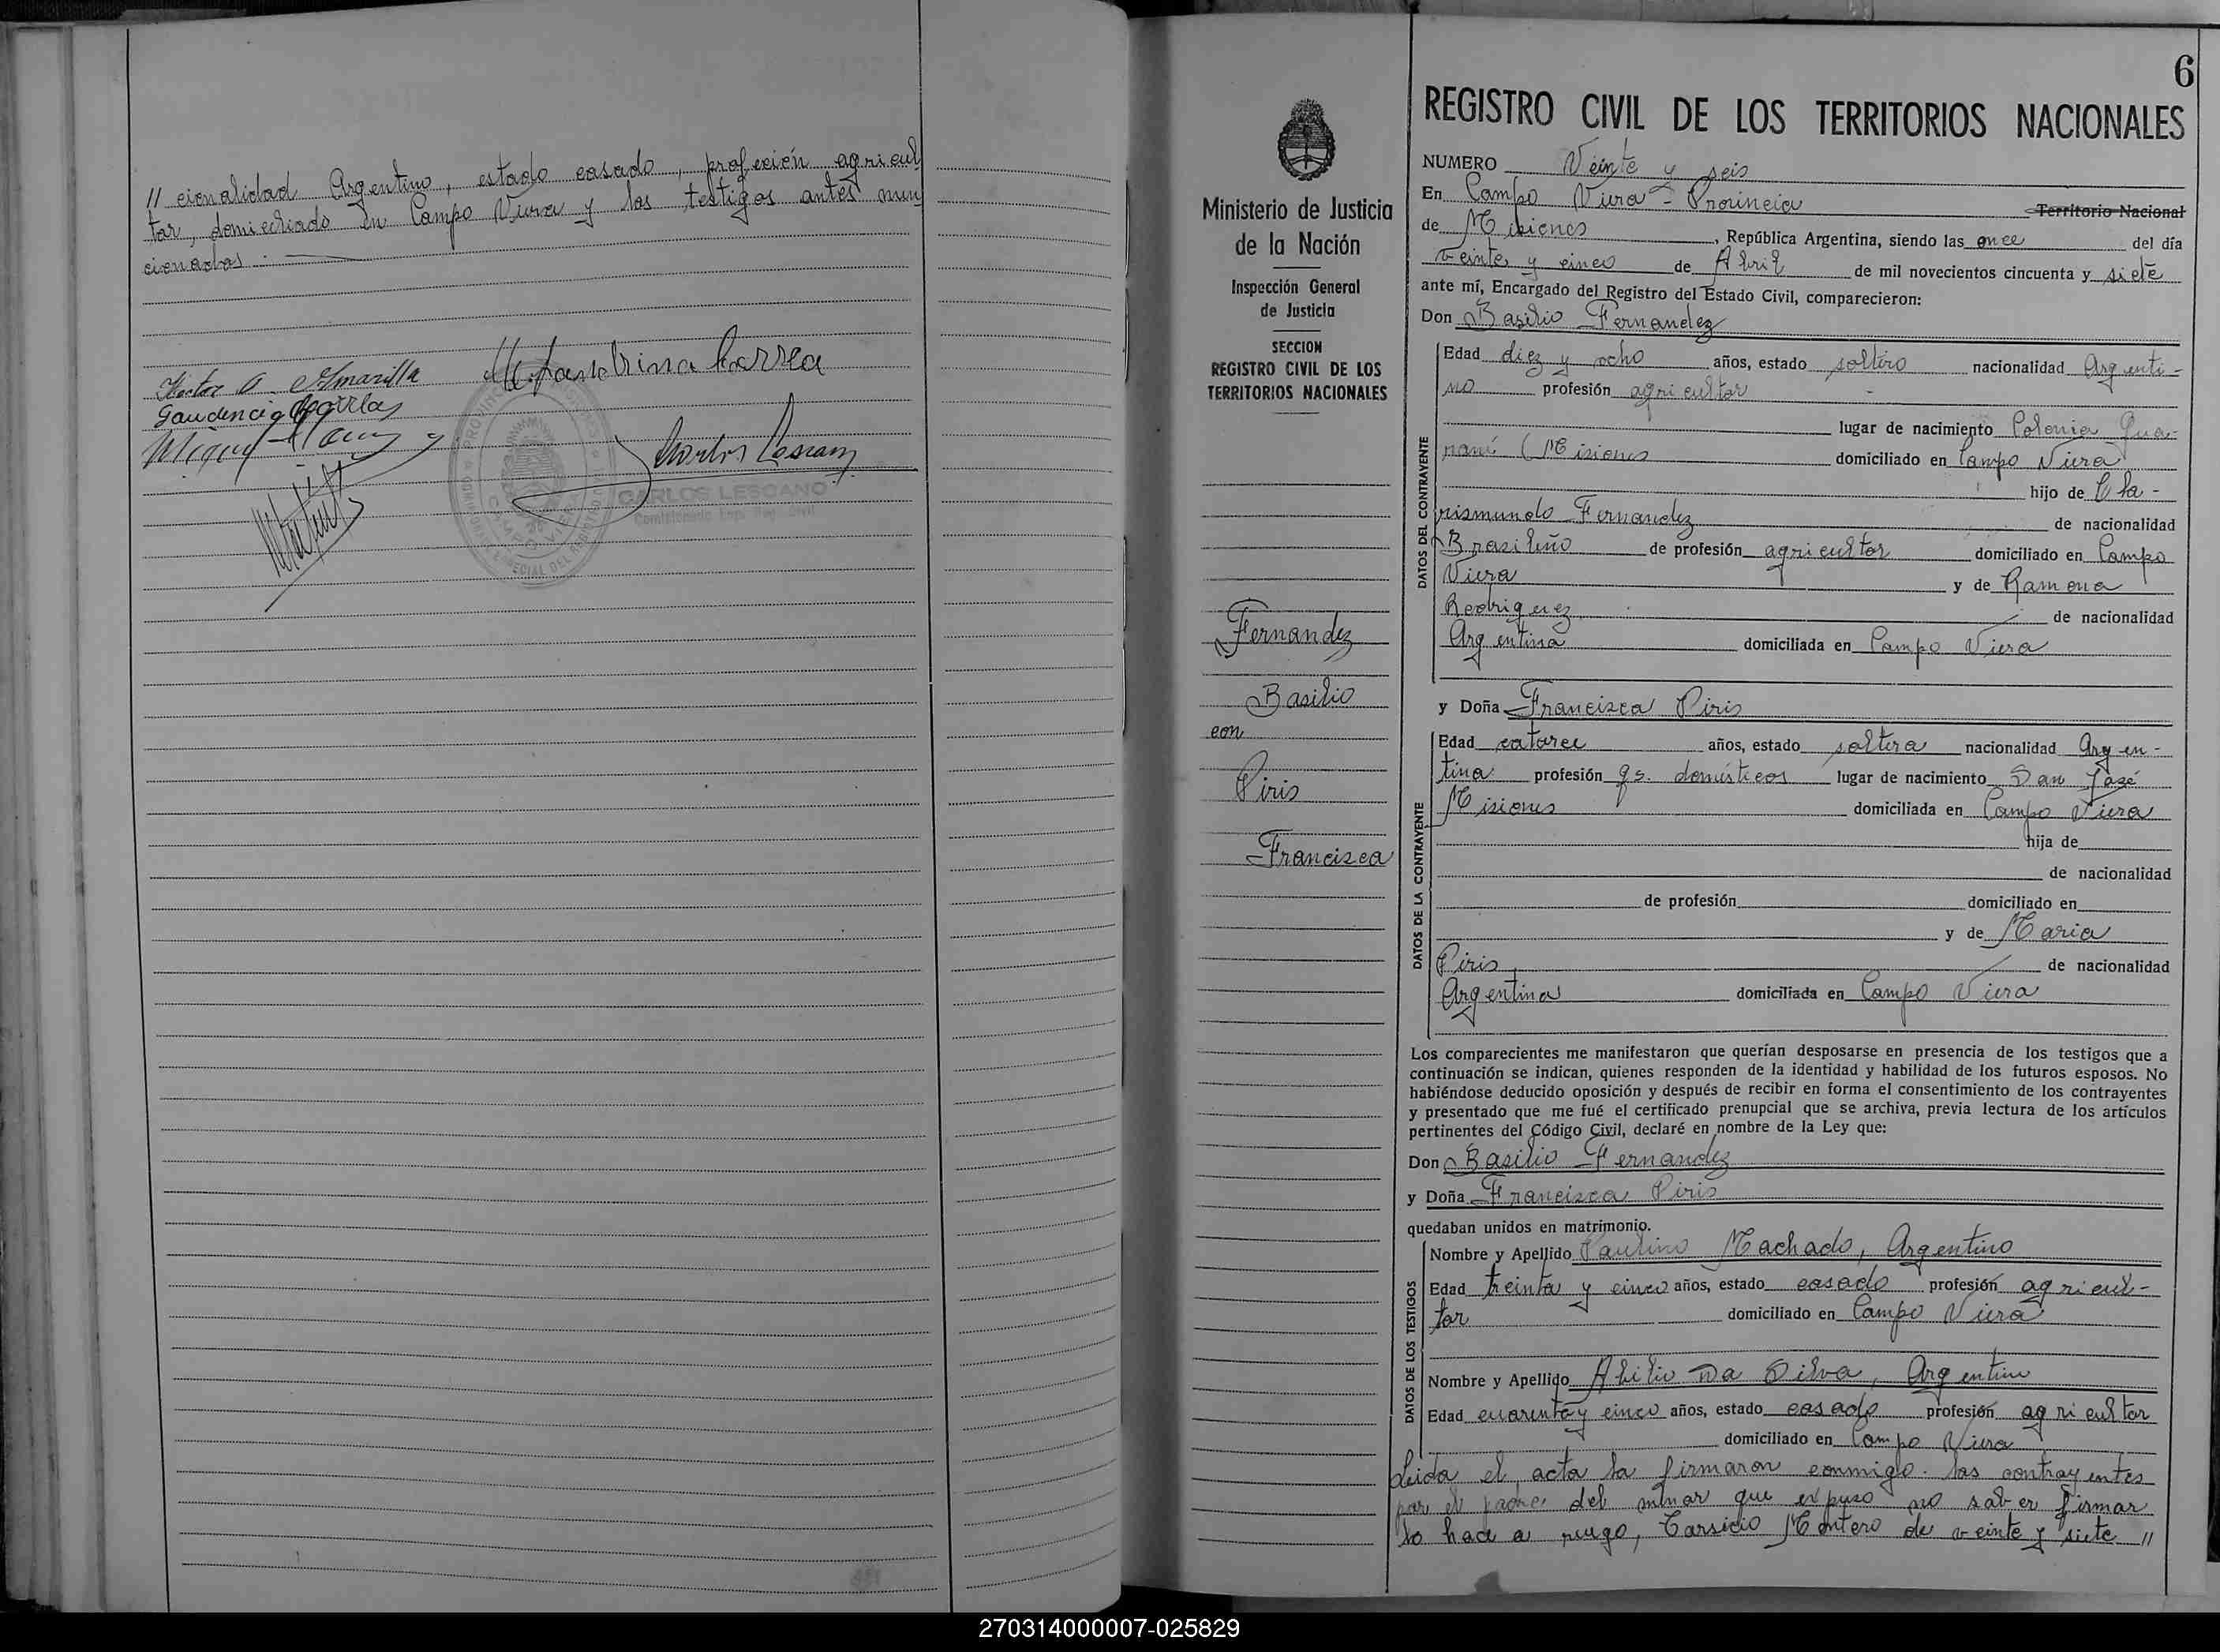 // cionalidad Argentino, estado casado, profeción agricul
tor, domiciliado en Campo Viera y los testigos antes mun
cionados.
Hector A Amarilla
Carlos Lescano
CARLOS LESCANO
6
REGISTRO CIVIL DE LOS TERRITORIOS NACIONALES
Ministerio de Justicia
de la Nación
Inspección General
de Justicia
SECCION
REGISTRO CIVIL DE LOS
TERRITORIOS NACIONALES
Fernandez
Basilio
con
Piris
Francisca
NUMERO Veinte y seis
En Campo Viera - Provincia Territorio Nacional
de Misiones, República Argentina, siendo las once del día
veinte y cinco de Abril de mil novecientos cincuenta y siete
ante mí, Encargado del Registro del Estado Civil, comparecieron:
Don Basilio Fernandez
DATOS DEL CONTRAYENTE
Edad diez y ocho años, estado soltero nacionalidad Argenti-
no profesión agricultor -
lugar de nacimiento Colonia Gua-
raní (Misiones domiciliado en Campo Viera
hijo de Cha-
rismundo Fernandez de nacionalidad
Brasileño de profesión agricultor domiciliado en Campo
Viera y de Ramona
Rodriguez de nacionalidad
Argentina domiciliada en Campo Viera
y Doña Francisca Piris
DATOS DE LA CONTRAYENTE
Edad catorce años, estado soltera nacionalidad Argen-
tina profesión qs. domésticos lugar de nacimiento San José
Misiones domiciliada en Campo Viera
hija de
de nacionalidad
de profesión domiciliado en
y de Maria
Piris de nacionalidad
Argentina domiciliada en Campo Viera
Los comparecientes me manifestaron que querían desposarse en presencia de los testigos que a
continuación se indican, quienes responden de la identidad y habilidad de los futuros esposos. No
habiéndose deducido oposición y después de recibir en forma el consentimiento de los contrayentes
y presentado que me fué el certificado prenupcial que se archiva, previa lectura de los artículos
pertinentes del Código Civil, declaré en nombre de la Ley que:
Don Basilio Fernandez
y Doña Francisca Piris
quedaban unidos en matrimonio.
DATOS DE LOS TESTIGOS
Nombre y Apellido Paulino Machado, Argentino
Edad treinta y cinco años, estado casado profesión agricul-
tor domiciliado en Campo Viera
Nombre y Apellido Abilio Da Silva, Argentino
Edad cuarenta y cinco años, estado casado profesión agricultor
domiciliado en Campo Viera
Leida el acta la firmaron conmigo. los contrayentes
por el padre del menor que expuso no saber firmar
lo hace a ruego, Tarsicio Montero de veinte y siete //
270314000007-025829